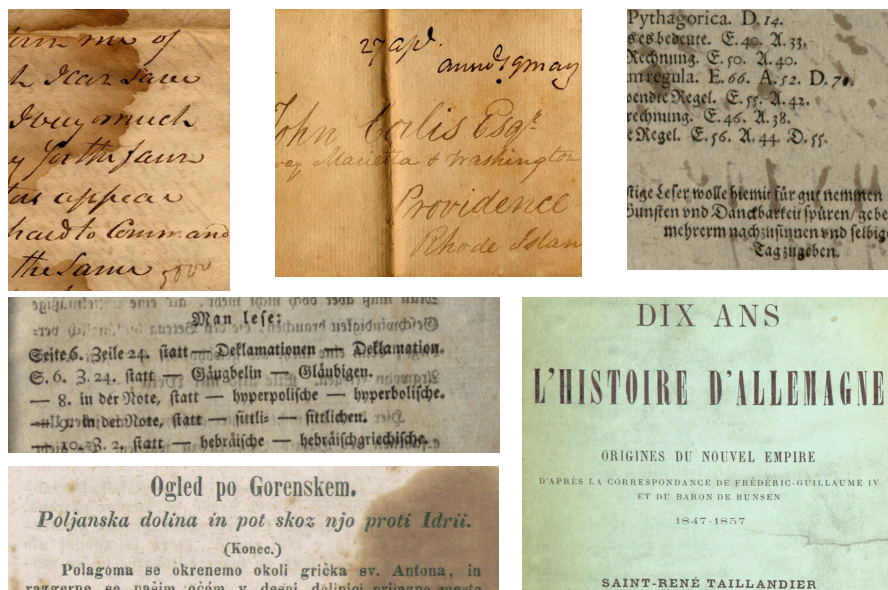 me of
I very much
as appear
hard to Command
the Same
5000
27 apl.
John Esqr.
way Marietta & Washington
Providence
Rhode Islan
Pythagorica. D. 14.
s es bedeute. E. 40. A. 33.
Rechnung. E. 50. A. 40.
m regula. E. 66. A. 52. D. 71.
ende Regel. E. 55. A. 42.
rechnung. E. 46. A. 38.
e Regel. E. 56. A. 44. D. 55.
stige Leser wolle hiemit für gut nemmen
Gunsten vnd Danckbarkeit spüren/ gebe
mehrerm nachzusinnen vnd selbig
Tag zugeben.
Man lese:
Seite 6. Zeile 24. statt — Deklamationen — Deklamation.
S. 6. Z. 24. statt — Gäugbelin — Gläubigen.
— 8. in der Note, statt — hyperpolische — hyperbolische.
— 9. in der Note, statt — sittli- — sittlichen.
— 10. Z. 2. statt — hebräische — hebräischgriechische.
DIX ANS
L'HISTOIRE D'ALLEMAGNE
ORIGINES DU NOUVEL EMPIRE
D'APRÈS LA CORRESPONDANCE DE FRÉDÉRIC-GUILLAUME IV
ET DU BARON DE BUNSEN
1847-1857
SAINT-RENÉ TAILLANDIER
Ogled po Gorenskem.
Poljanska dolina in pot skoz njo proti Idrii.
(Konec.)
Polagoma se okrenemo okoli grička sv. Antona, in
razgerne se našim očém v desni dolinici prijazno mesto